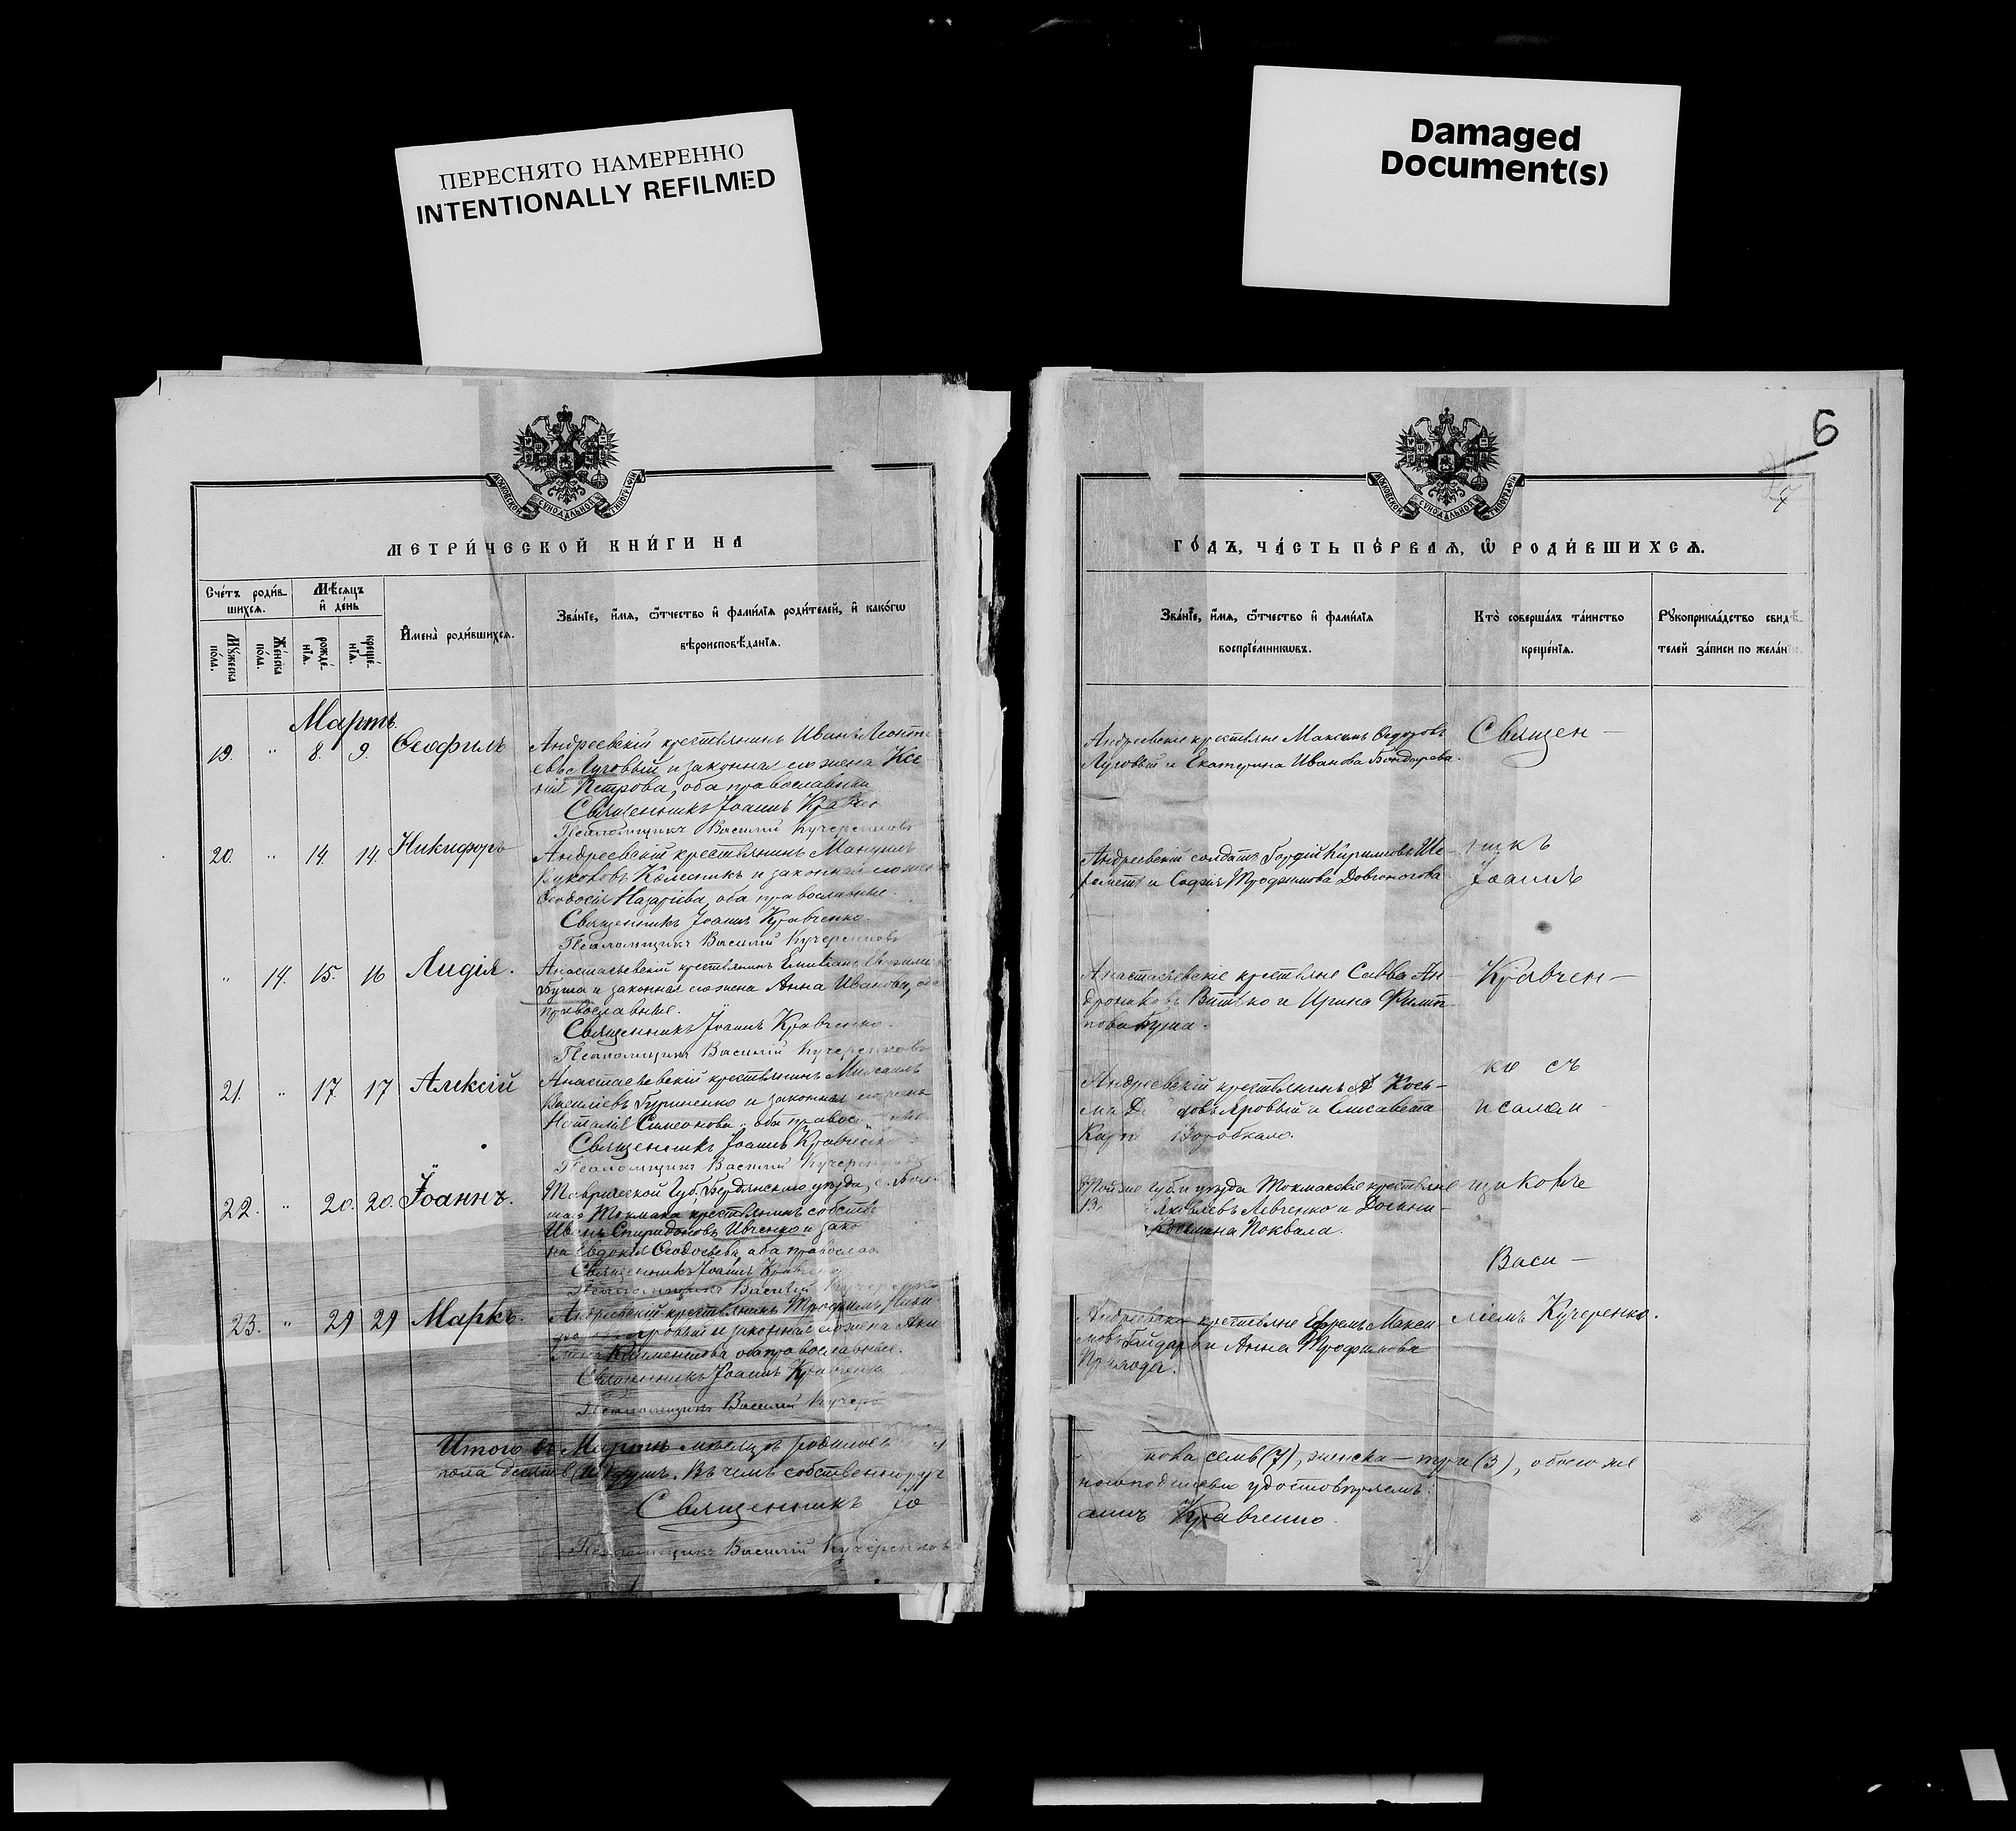 ПЕРЕСНЯТО НАМЕРЕННО
INTENTIONALLY REFILMED
Damaged
Document(s)
МОСКОВСКОЙ СУНОДАЛЬНОЙ ТИПОГРАФІИ
МЕТРИ́ЧЕСКОЙ КНИ́ГИ НА
Сче́тъ роди́в-
шихсѧ.
Мѣ́сяцъ
и҆ де́нь
Мꙋ́жеска
по́ла.
Же́нска
по́ла.
рожде́-
нїѧ.
креще́-
нїѧ.
И҆мена̀ роди́вшихсѧ.
Зва́нїе, и҆́мѧ, ѻ҆́тчество и҆ фами́лїѧ роди́телей, и҆ како́гѡ
вѣроисповѣ́данїѧ.
Мартъ
19. " 8. 9. Ѳеофилъ
Андреевскій крестьянинъ Иванъ Леонть-
евъ Луговый и законная его жена Ксе-
нія Петрова, оба православные
Священникъ Іоаннъ
Псаломщикъ Василій Кучеренковъ
20. " 14. 14. Никифоръ
Андреевскій крестьянинъ Мануилъ
Колесникъ и законная его жена
Ѳеодосія Назаріева, оба православные.
Священникъ Іоаннъ Кравченко.
Псаломщикъ Василій Кучеренковъ
" 14. 15. 16 Лидія.
Анастасьевскій крестьянинъ Емиліанъ
Буша и законная его жена Анна Иванова, оба
православные.
Священникъ Іоаннъ Кравченко.
Псаломщикъ Василій Кучеренковъ
21. " 17. 17 Алексій
Анастасьевскій крестьянинъ Михаилъ
Василіевъ Гуриненко и законная его жена
Наталія Симеонова, оба
Священникъ Іоаннъ Кравченко
Псаломщикъ Василій Кучеренковъ
22. " 20. 20. Іоаннъ.
Таврической Губ, Бердянскаго уѣзда, с.
Токмака крестьянинъ собств
Иванъ Спиридоновъ Ивченко и зако
на Евдокія Ѳеодосьева, оба православ
Священникъ Іоаннъ Кравченко
Псаломщикъ Василій Кучеренко
23. " 29 29 Маркъ.
Андреевскій крестьянинъ Трофимъ
и законная его жена
Климентова оба православные.
Священникъ Іоаннъ Кравченко
Псаломщикъ Василій Кучере
Итого въ Мартѣ мѣсяцѣ родилось
пола десять (10) душъ. Въ чемъ собственнору
Священникъ Іо
Псаломщикъ Василій Кучеренковъ
6
7
МОСКОВСКОЙ СУНОДАЛЬНОЙ ТИПОГРАФІИ
ГО́ДЪ, ЧА́СТЬ ПЕ́РВАѦ, Ѡ҆ РОДИ́ВШИХСѦ.
Зва́нїе, и҆́мѧ, ѻ҆́тчество и҆ фами́лїѧ
воспрїе́мникѡвъ.
Кто̀ соверша́лъ та́инство
креще́нїѧ.
Рꙋкоприкла́дство свидѣ́-
телей за́писи по жела́нїю.
Андреевскіе крестьяне Максимъ Ѳедоровъ
Луговый и Екатерина Иванова Бондарева.
Священ-
Андреевскій солдатъ Гордій Кириловъ Ше-
реметъ и Софія Трофимова Довгоногова.
никъ
Іоаннъ
Анастасьевскіе крестьяне Савва Ан-
дрониковъ Витько и Ирина Филип-
пова Буша.
Кравчен-
ко съ
Андреевскій крестьянинъ Козь-
ма Яровый и Елисавета
псалом-
Воробкало.
Той же губ. и уѣзда Токмакскіе крестьяне
щикомъ
Яковлевъ Левченко и
Поквала.
Васи-
Андреевскіе крестьяне Ефремъ Макси-
ліемъ Кучеренко.
мовъ Гайдаръ и Анна Трофимова
пола семь (7), женска - три (3), обоего же
ноподписью удостовѣряемъ:
аннъ Кравченко.